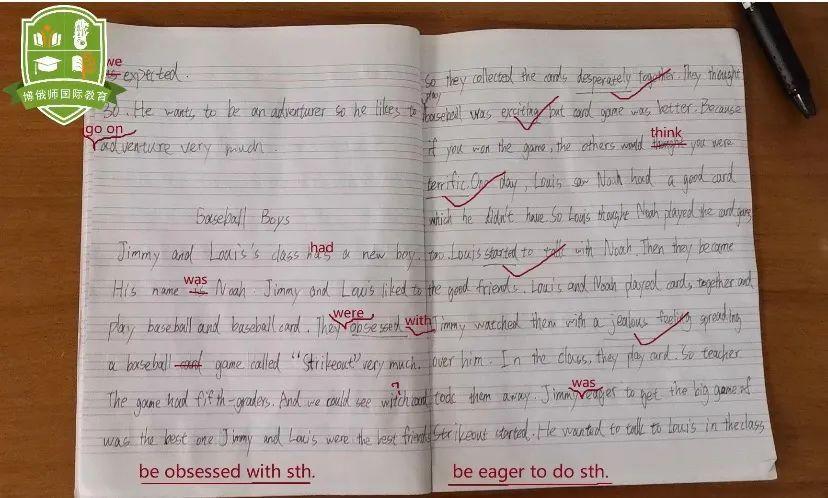 博俄师国际教育
we
as expected.
So. He wants to be an adventurer so he likes to
go on
adventure very much.
Baseball Boys
Jimmy and Louis's class has a new boy.
had
His name is Noah. Jimmy and Louis liked to
was
play baseball and baseball card. They obsessed
were
with
a baseball card game called "Strikeout" very much.
The game had fifth-graders. And we could see witch card
was the best one. Jimmy and Louis were the best friends
be obsessed with sth.
So they collected the cards desperately together. They thought
play
baseball was exciting but card game was better. Because
if you won the game, the others would thought you were
think
terrific. One day, Louis saw Noah had a good card
which he didn't have. So Louis thought Noah played the card game
too. Louis started to talk with Noah. Then they became
the good friends. Louis and Noah played cards together and
Jimmy watched them with a jealous feeling spreading
over him. In the class, they play card. So teacher
took them away. Jimmy eager to get the big game of
was
Strikeout started. He wanted to talk to Louis in the class
be eager to do sth.